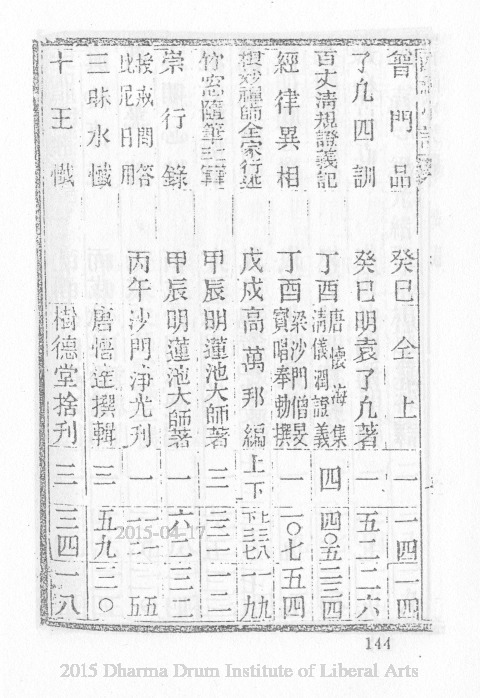 普門品 癸巳 仝上 一 一四 一四
了凡四訓 癸巳 明袁了凡著 一 五二 二六
百丈清規證義記 丁酉 唐懷海集 清儀潤證義 四 四〇五 二三四
經律異相 丁酉 梁沙門僧旻寶唱奉勅撰 一 一〇七 五四
禪師全家行述 戊戌 高萬邦編 上下 一九
竹窓隨筆 甲辰 明蓮池大師著 三 一二
崇行錄 甲辰 明蓮池大師著 一 六二 三二
接戒問答 毗尼日用 丙午 沙門淨光刋 一
三昧水懺 唐悟達撰輯 三 五九 三〇
十王懺 樹德堂捨刋 三 三四 一八
144
2015-04-17
2015 Dharma Drum Institute of Liberal Arts